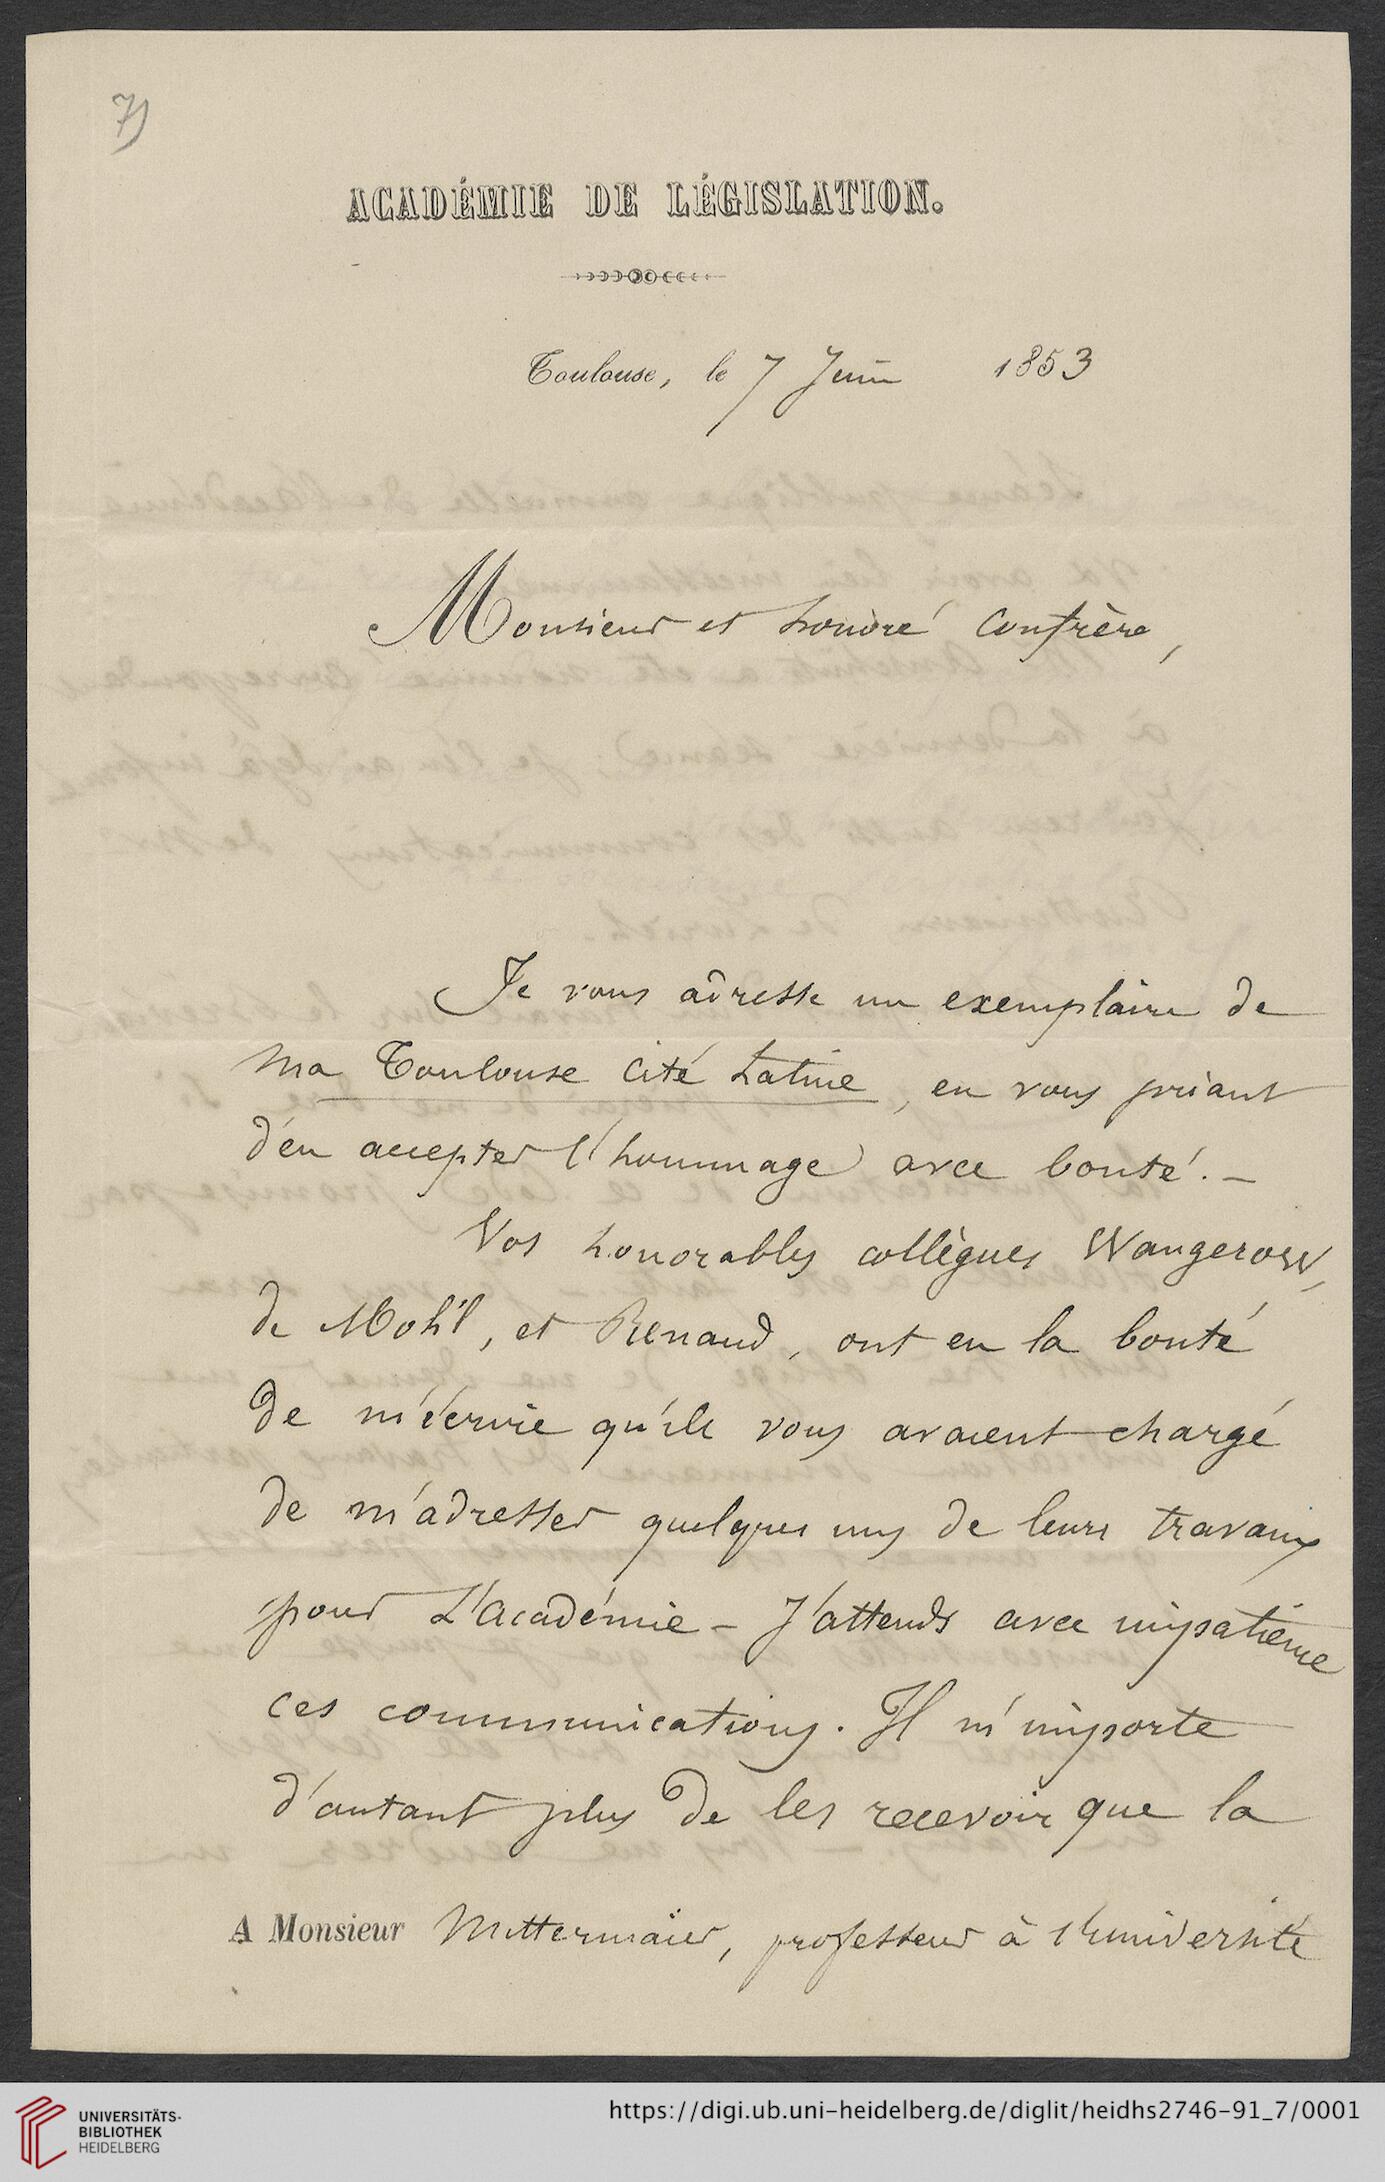 7)
ACADÉMIE DE LÉGISLATION.
Toulouse, le 7 Juin 1853
Monsieur et honoré Confrère,
Je vous adresse un exemplaire de
ma Toulouse Cité Latine, en vous priant
d'en accepter l'hommage avec bonté. –
Vos honorables collègues Wangerow,
de Mohl, et Renaud, ont eu la bonté
de m'écrire qu'ils vous avaient chargé
de m'adresser quelques uns de leurs travaux
pour L'Académie – J'attends avec impatience
ces communications. Il m'importe
d'autant plus de les recevoir que la
A Monsieur Mittermaïer, professeur à l'université
UNIVERSITÄTS-
BIBLIOTHEK
HEIDELBERG
https://digi.ub.uni-heidelberg.de/diglit/heidhs2746-91_7/0001